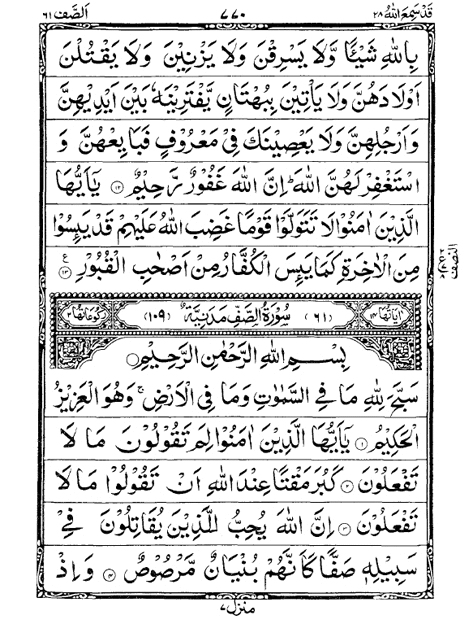 قَدْ سَمِعَ اللّٰهُ ٢٨ ٧٧٠ اَلصَّفّ ٦١
بِاللّٰهِ شَيْئًا وَّلَا يَسْرِقْنَ وَلَا يَزْنِيْنَ وَلَا يَقْتُلْنَ
اَوْلَادَهُنَّ وَلَا يَأْتِيْنَ بِبُهْتَانٍ يَّفْتَرِيْنَهٗ بَيْنَ اَيْدِيْهِنَّ
وَاَرْجُلِهِنَّ وَلَا يَعْصِيْنَكَ فِيْ مَعْرُوْفٍ فَبَايِعْهُنَّ وَ
اسْتَغْفِرْ لَهُنَّ اللّٰهَ ؕ اِنَّ اللّٰهَ غَفُوْرٌ رَّحِيْمٌ ۝١٢ يٰۤاَيُّهَا
الَّذِيْنَ اٰمَنُوْا لَا تَتَوَلَّوْا قَوْمًا غَضِبَ اللّٰهُ عَلَيْهِمْ قَدْ يَىِٕسُوْا
مِنَ الْاٰخِرَةِ كَمَا يَىِٕسَ الْكُفَّارُ مِنْ اَصْحٰبِ الْقُبُوْرِ ۝١٣ ع
اٰيَاتُهَا ١٤ (٦١) سُوْرَةُ الصَّفِّ مَدَنِيَّةٌ (١٠٩) رُكُوْعَاتُهَا ٢
بِسْمِ اللّٰهِ الرَّحْمٰنِ الرَّحِيْمِ
سَبَّحَ لِلّٰهِ مَا فِي السَّمٰوٰتِ وَمَا فِي الْاَرْضِ ۚ وَهُوَ الْعَزِيْزُ
الْحَكِيْمُ ۝١ يٰۤاَيُّهَا الَّذِيْنَ اٰمَنُوْا لِمَ تَقُوْلُوْنَ مَا لَا
تَفْعَلُوْنَ ۝٢ كَبُرَ مَقْتًا عِنْدَ اللّٰهِ اَنْ تَقُوْلُوْا مَا لَا
تَفْعَلُوْنَ ۝٣ اِنَّ اللّٰهَ يُحِبُّ الَّذِيْنَ يُقَاتِلُوْنَ فِيْ
سَبِيْلِهٖ صَفًّا كَاَنَّهُمْ بُنْيَانٌ مَّرْصُوْصٌ ۝٤ وَاِذْ
منزل ٧